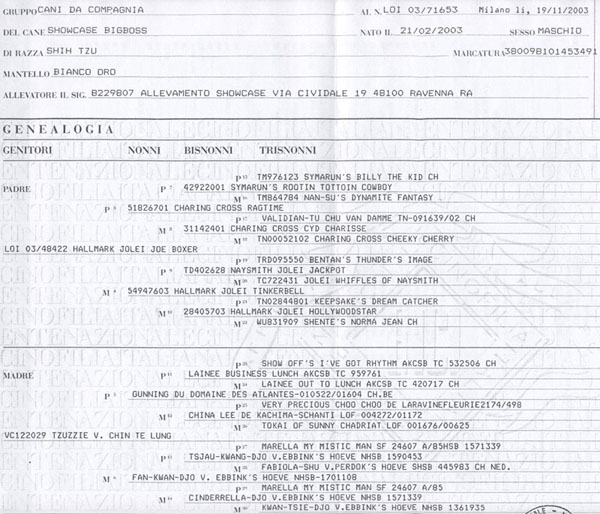 GRUPPO CANI DA COMPAGNIA AL N. LOI 03/71653 Milano li, 19/11/2003
DEL CANE SHOWCASE BIGBOSS NATO IL 21/02/2003 SESSO MASCHIO
DI RAZZA SHIH TZU MARCATURA 380098101453491
MANTELLO BIANCO ORO
ALLEVATORE IL SIG. B229807 ALLEVAMENTO SHOWCASE VIA CIVIDALE 19 48100 RAVENNA RA
GENEALOGIA
GENITORI NONNI BISNONNI TRISNONNI
P 15 TM976123 SYMARUN'S BILLY THE KID CH
PADRE P 7 42922001 SYMARUN'S ROOTIN TOTTOIN COWBOY
M 16 TM864784 NAN-SU'S DYNAMITE FANTASY
P 3 51826701 CHARING CROSS RAGTIME
P 17 VALIDIAN-TU CHU VAN DAMME TN-091639/02 CH
M 8 31142401 CHARING CROSS CYD CHARISSE
M 18 TN00052102 CHARING CROSS CHEEKY CHERRY
LOI 03/48422 HALLMARK JOLEI JOE BOXER
P 19 TRD095550 BENTAN'S THUNDER'S IMAGE
P 9 TD402628 NAYSMITH JOLEI JACKPOT
M 20 TC722431 JOLEI WHIFFLES OF NAYSMITH
M 4 54947603 HALLMARK JOLEI TINKERBELL
P 21 TN02844801 KEEPSAKE'S DREAM CATCHER
M 10 28405703 HALLMARK JOLEI HOLLYWOODSTAR
M 22 WU831909 SHENTE'S NORMA JEAN CH
P 23 SHOW OFF'S I'VE GOT RHYTHM AKCSB TC 532506 CH
MADRE P 11 LAINEE BUSINESS LUNCH AKCSB TC 959761
M 24 LAINEE OUT TO LUNCH AKCSB TC 420717 CH
P 5 GUNNING DU DOMAINE DES ATLANTES-010522/01604 CH.BE
P 25 VERY PRECIOUS CHOO CHOO DE LARAVINEFLEURIE2174/498
M 12 CHINA LEE DE KACHIMA-SCHANTI LOF 004272/01172
M 26 TOKAI OF SUNNY CHADRIAT LOF 001676/00625
VC122029 TZUZZIE V. CHIN TE LUNG
P 27 MARELLA MY MISTIC MAN SF 24607 A/85HSB 1571339
P 13 TSJAU-KWANG-DJO V.EBBINK'S HOEVE NHSB 1590453
M 28 FABIOLA-SHU V.PERDOK'S HOEVE SHSB 445983 CH NED.
M 6 FAN-KWAN-DJO V. EBBINK'S HOEVE NHSB-1701108
P 29 MARELLA MY MISTIC MAN SF 24607 A/85
M 14 CINDERRELLA-DJO V.EBBINK'S HOEVE NHSB 1571339
M 30 KWAN-TSIE-DJO V.EBBINK'S HOEVE NHSB 1361935